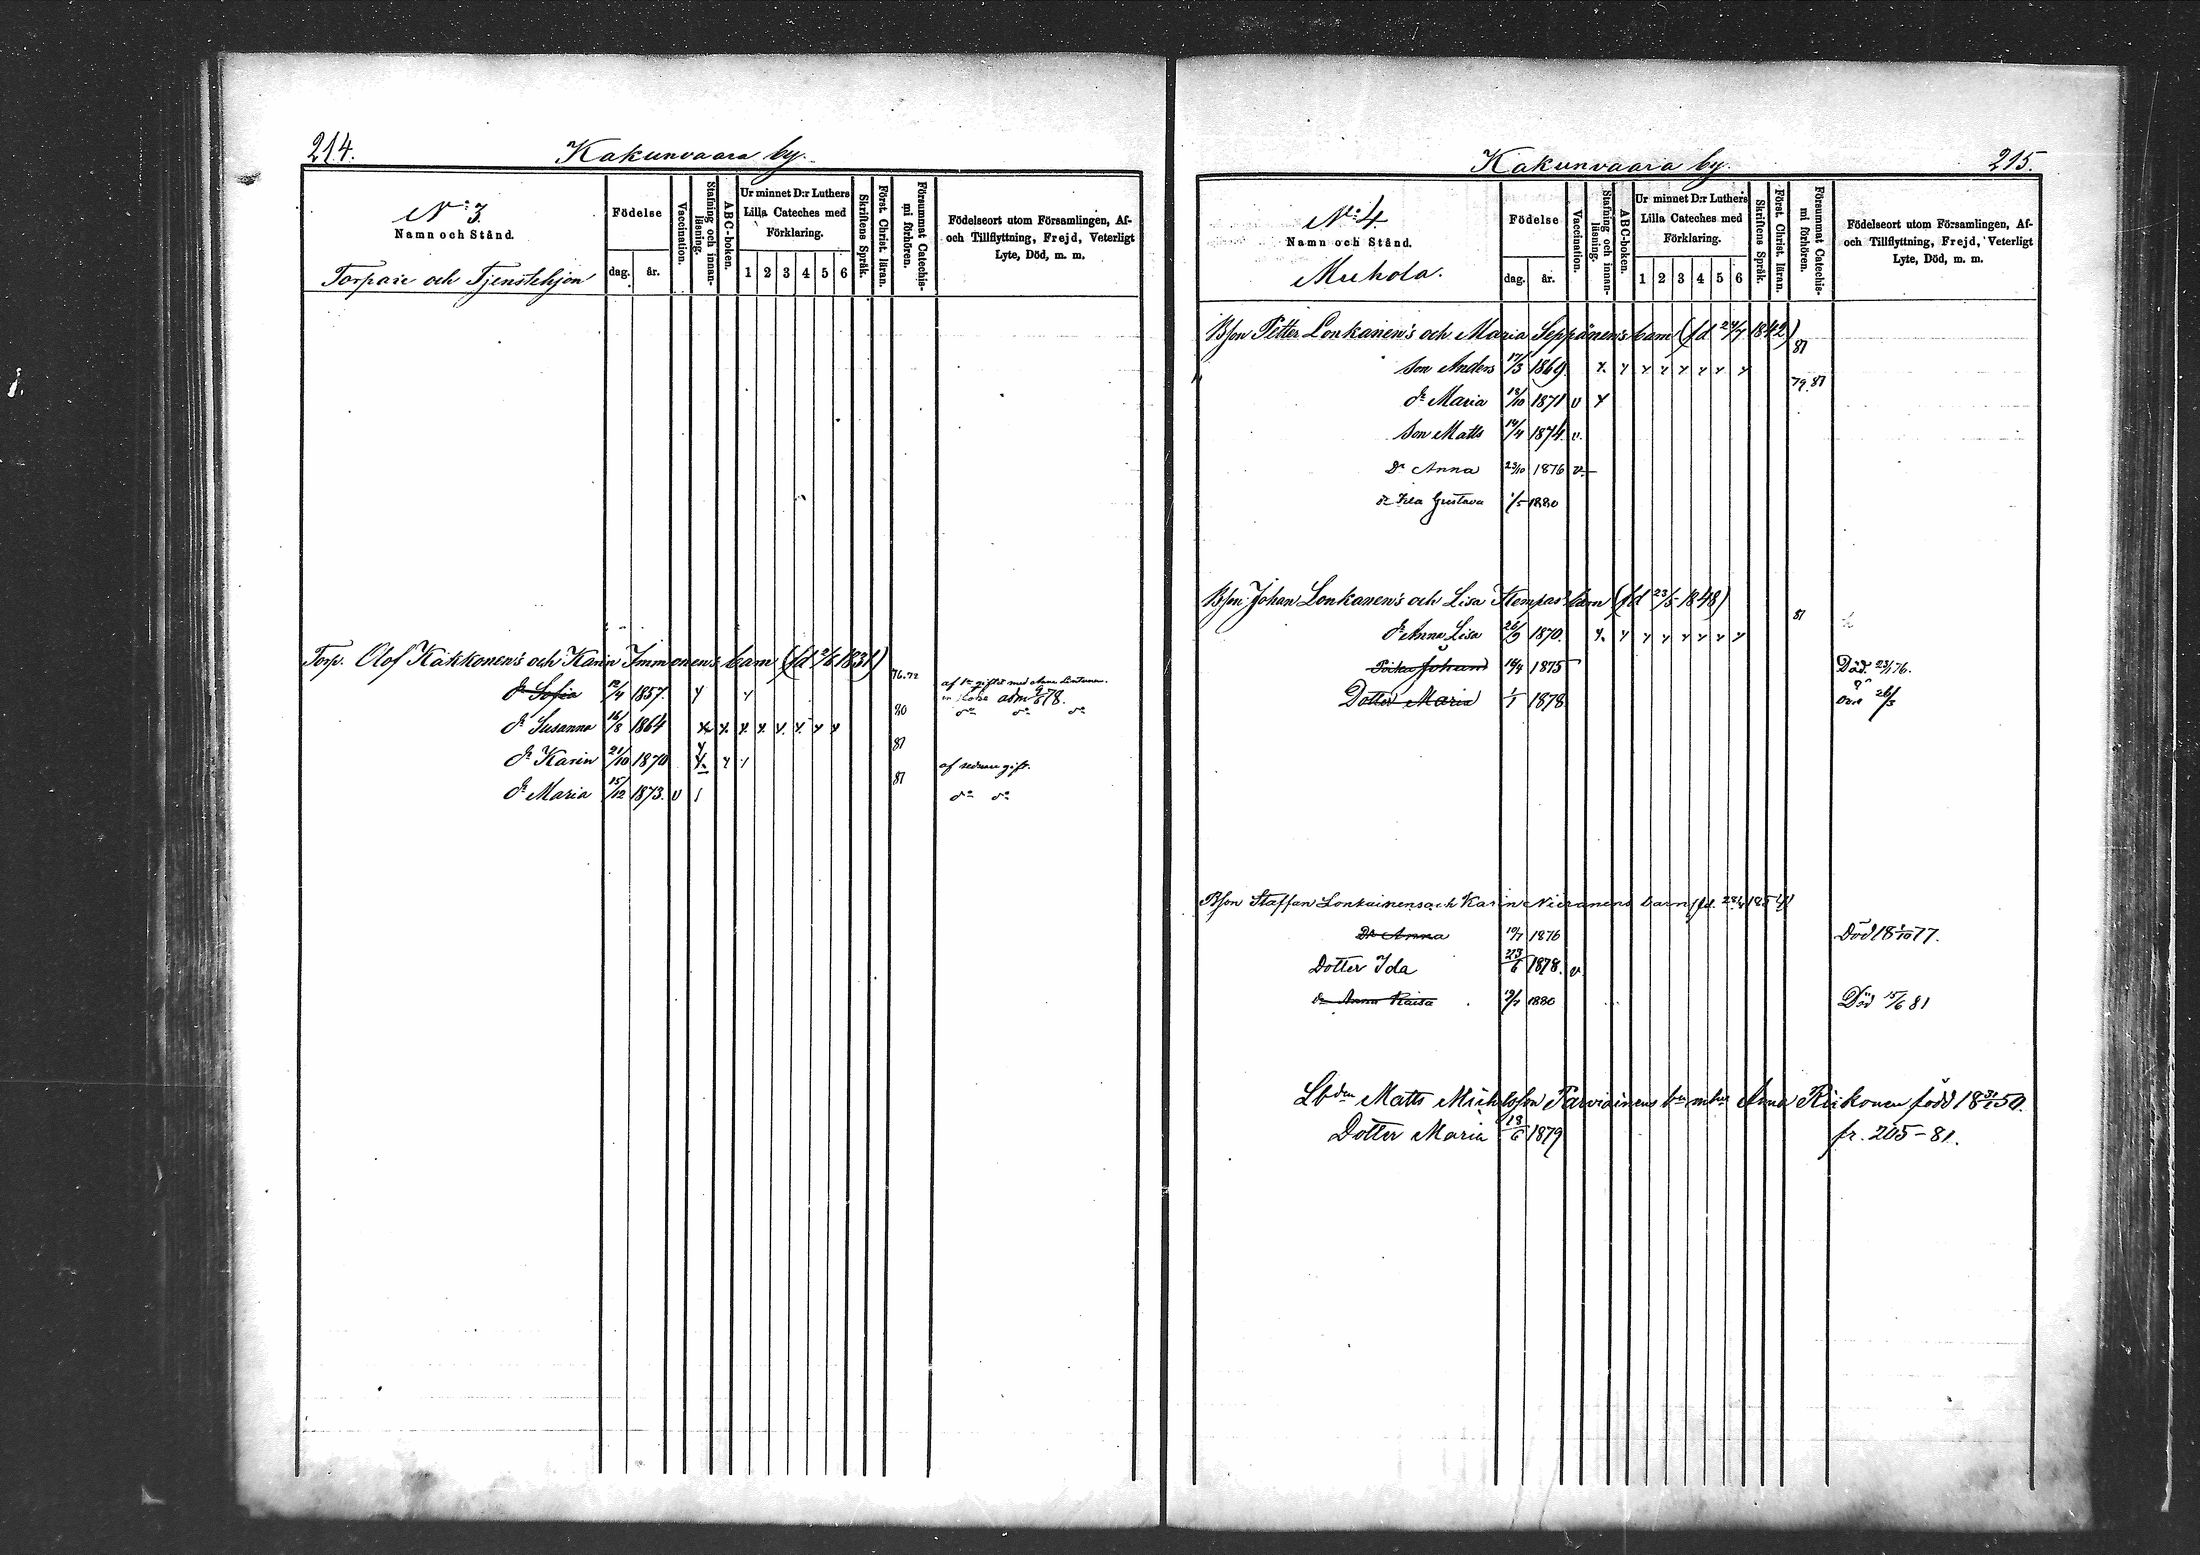 214.
Kakunvaara by.
N:o 3.
Namn och Stånd.
Torpare och Tjenstehjon
Födelse
dag. år.
Vaccination.
Stafning och innanläsning.
ABC-boken.
Ur minnet D:r Luthers
Lilla Cateches med
Förklaring.
1 2 3 4 5 6
Skriftens Språk.
Först. Christ. läran.
Försummat Catechismi förhören.
Födelseort utom Församlingen, Af-
och Tillflyttning, Frejd, Veterligt
Lyte, Död, m. m.
Torp. Olof Kakkonen's och Karin Immonen's barn (fd 2/6 1831)
dr Sofia 12/4 1857.
76.72
dr Susanna 16/8 1864
80
dr Karin 21/10 1870
81
af sednare gift.
dr Maria 15/12 1873. v
81
do do
Kakunvaara by.
215.
N:o 4.
Namn och Stånd.
Muhola.
Födelse
dag. år.
Vaccination.
Stafning och innanläsning.
ABC-boken.
Ur minnet D:r Luthers
Lilla Cateches med
Förklaring.
1 2 3 4 5 6
Skriftens Språk.
Först. Christ. läran.
Försummat Catechismi förhören.
Födelseort utom Församlingen, Af-
och Tillflyttning, Frejd, Veterligt
Lyte, Död, m. m.
Bson Petter Lonkanen's och Maria Seppänen's barn (fd 24/7 1842)
81
son Anders 17/3 1869
79.81
dr Maria 18/10 1871 v
son Matts 14/4 1874 v.
Dr Anna 23/10 1876 v
dr Ida Gustava 1/5 1880
Bson Johan Lonkanen's och Lisa barn (fd 23/5 1848)
81
dr Anna Lisa 26/9 1870.
Johan 1875
Död 23/1 76.
Dotter Maria 1/1 1878
Bson Staffan Lonkainens och Karin Nieranens barn
Dr Anna 10/7 1876
Död 18 1/10 77.
Dotter Ida 23/6 1878. v.
dr Anna Kaisa 19/7 1880
Död 15/6 81
Matts Parviainens Anna Riikonen född 18 31/1 50.
Dotter Maria 18/6 1879
fr. 205-81.